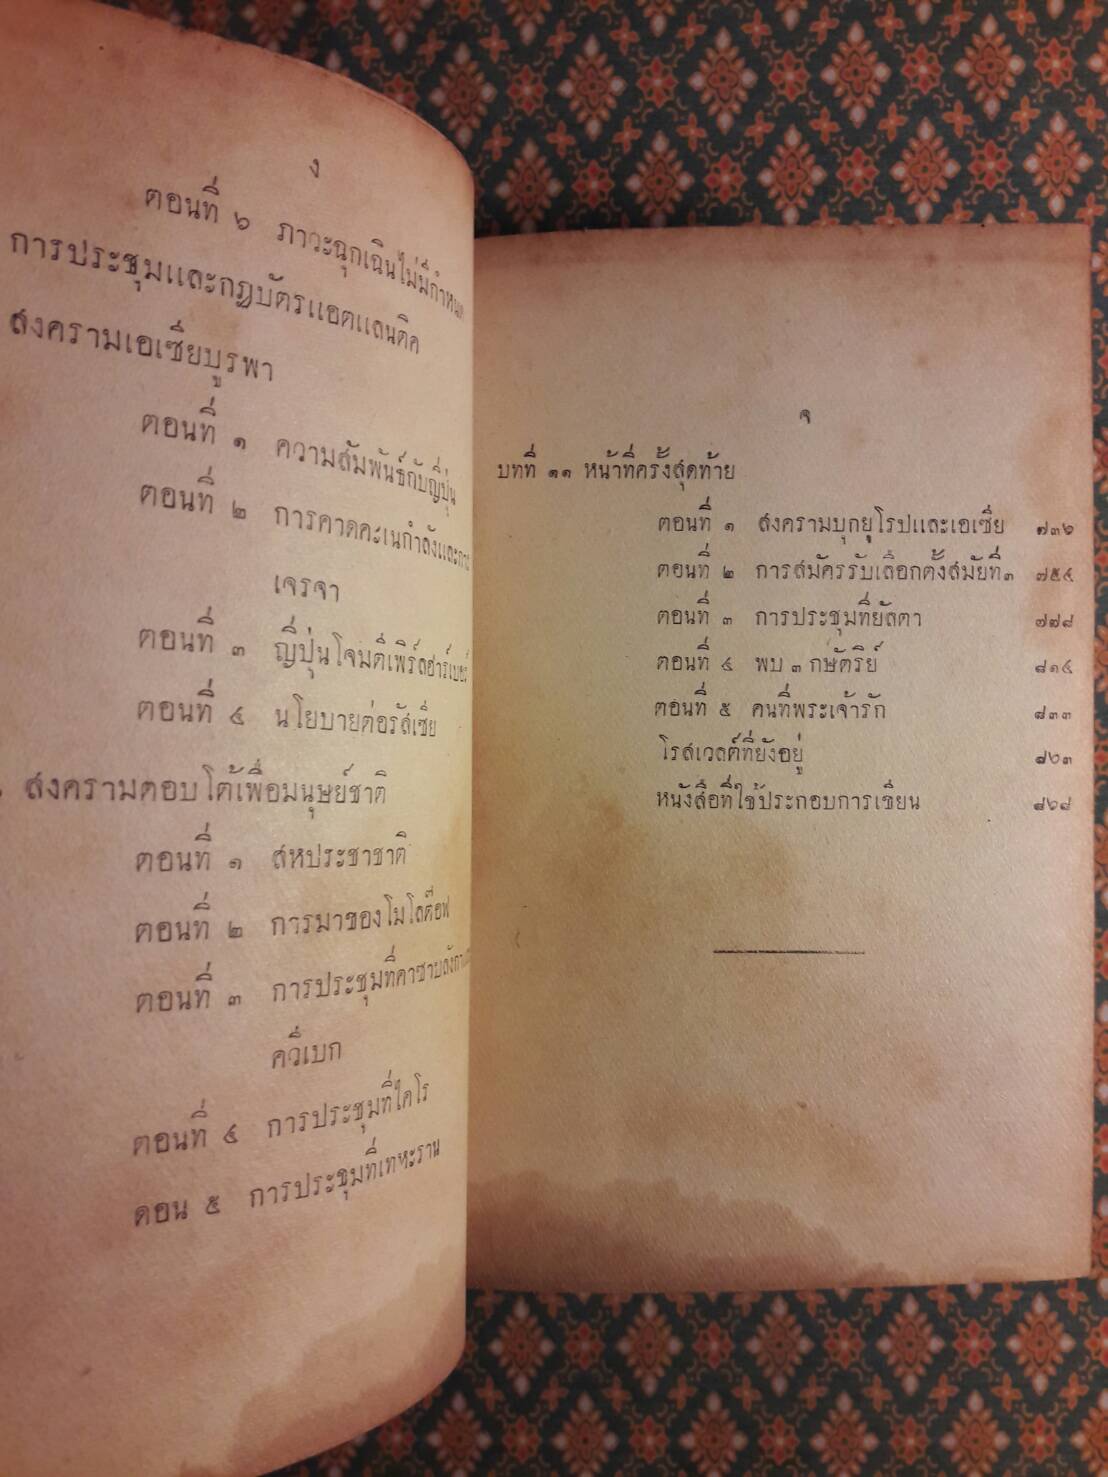 ง
ตอนที่ ๖ ภาวะฉุกเฉินไม่มีกำหนด
การประชุมและกฎบัตรแอตแลนติค
สงครามเอเซียบูรพา
ตอนที่ ๑ ความสัมพันธ์กับญี่ปุ่น
ตอนที่ ๒ การคาดคะเนกำลังและการ
เจรจา
ตอนที่ ๓ ญี่ปุ่นโจมตีเพิร์ลฮาร์เบอร์
ตอนที่ ๔ นโยบายต่อรัสเซีย
สงครามตอบโต้เพื่อมนุษย์ชาติ
ตอนที่ ๑ สหประชาชาติ
ตอนที่ ๒ การมาของโมโลต๊อฟ
ตอนที่ ๓ การประชุมที่คาซาบลังกา
ควีเบก
ตอนที่ ๔ การประชุมที่ไคโร
ตอน ๕ การประชุมที่เทหะราน
จ
บทที่ ๑๑ หน้าที่ครั้งสุดท้าย
ตอนที่ ๑ สงครามบุกยุโรปและเอเซีย ๗๓๖
ตอนที่ ๒ การสมัครรับเลือกตั้งสมัยที่๓ ๗๕๔
ตอนที่ ๓ การประชุมที่ยัลตา ๗๗๘
ตอนที่ ๔ พบ ๓ กษัตริย์ ๘๑๔
ตอนที่ ๕ คนที่พระเจ้ารัก ๘๓๓
โรสเวลต์ที่ยังอยู่ ๘๖๓
หนังสือที่ใช้ประกอบการเขียน ๘๖๘